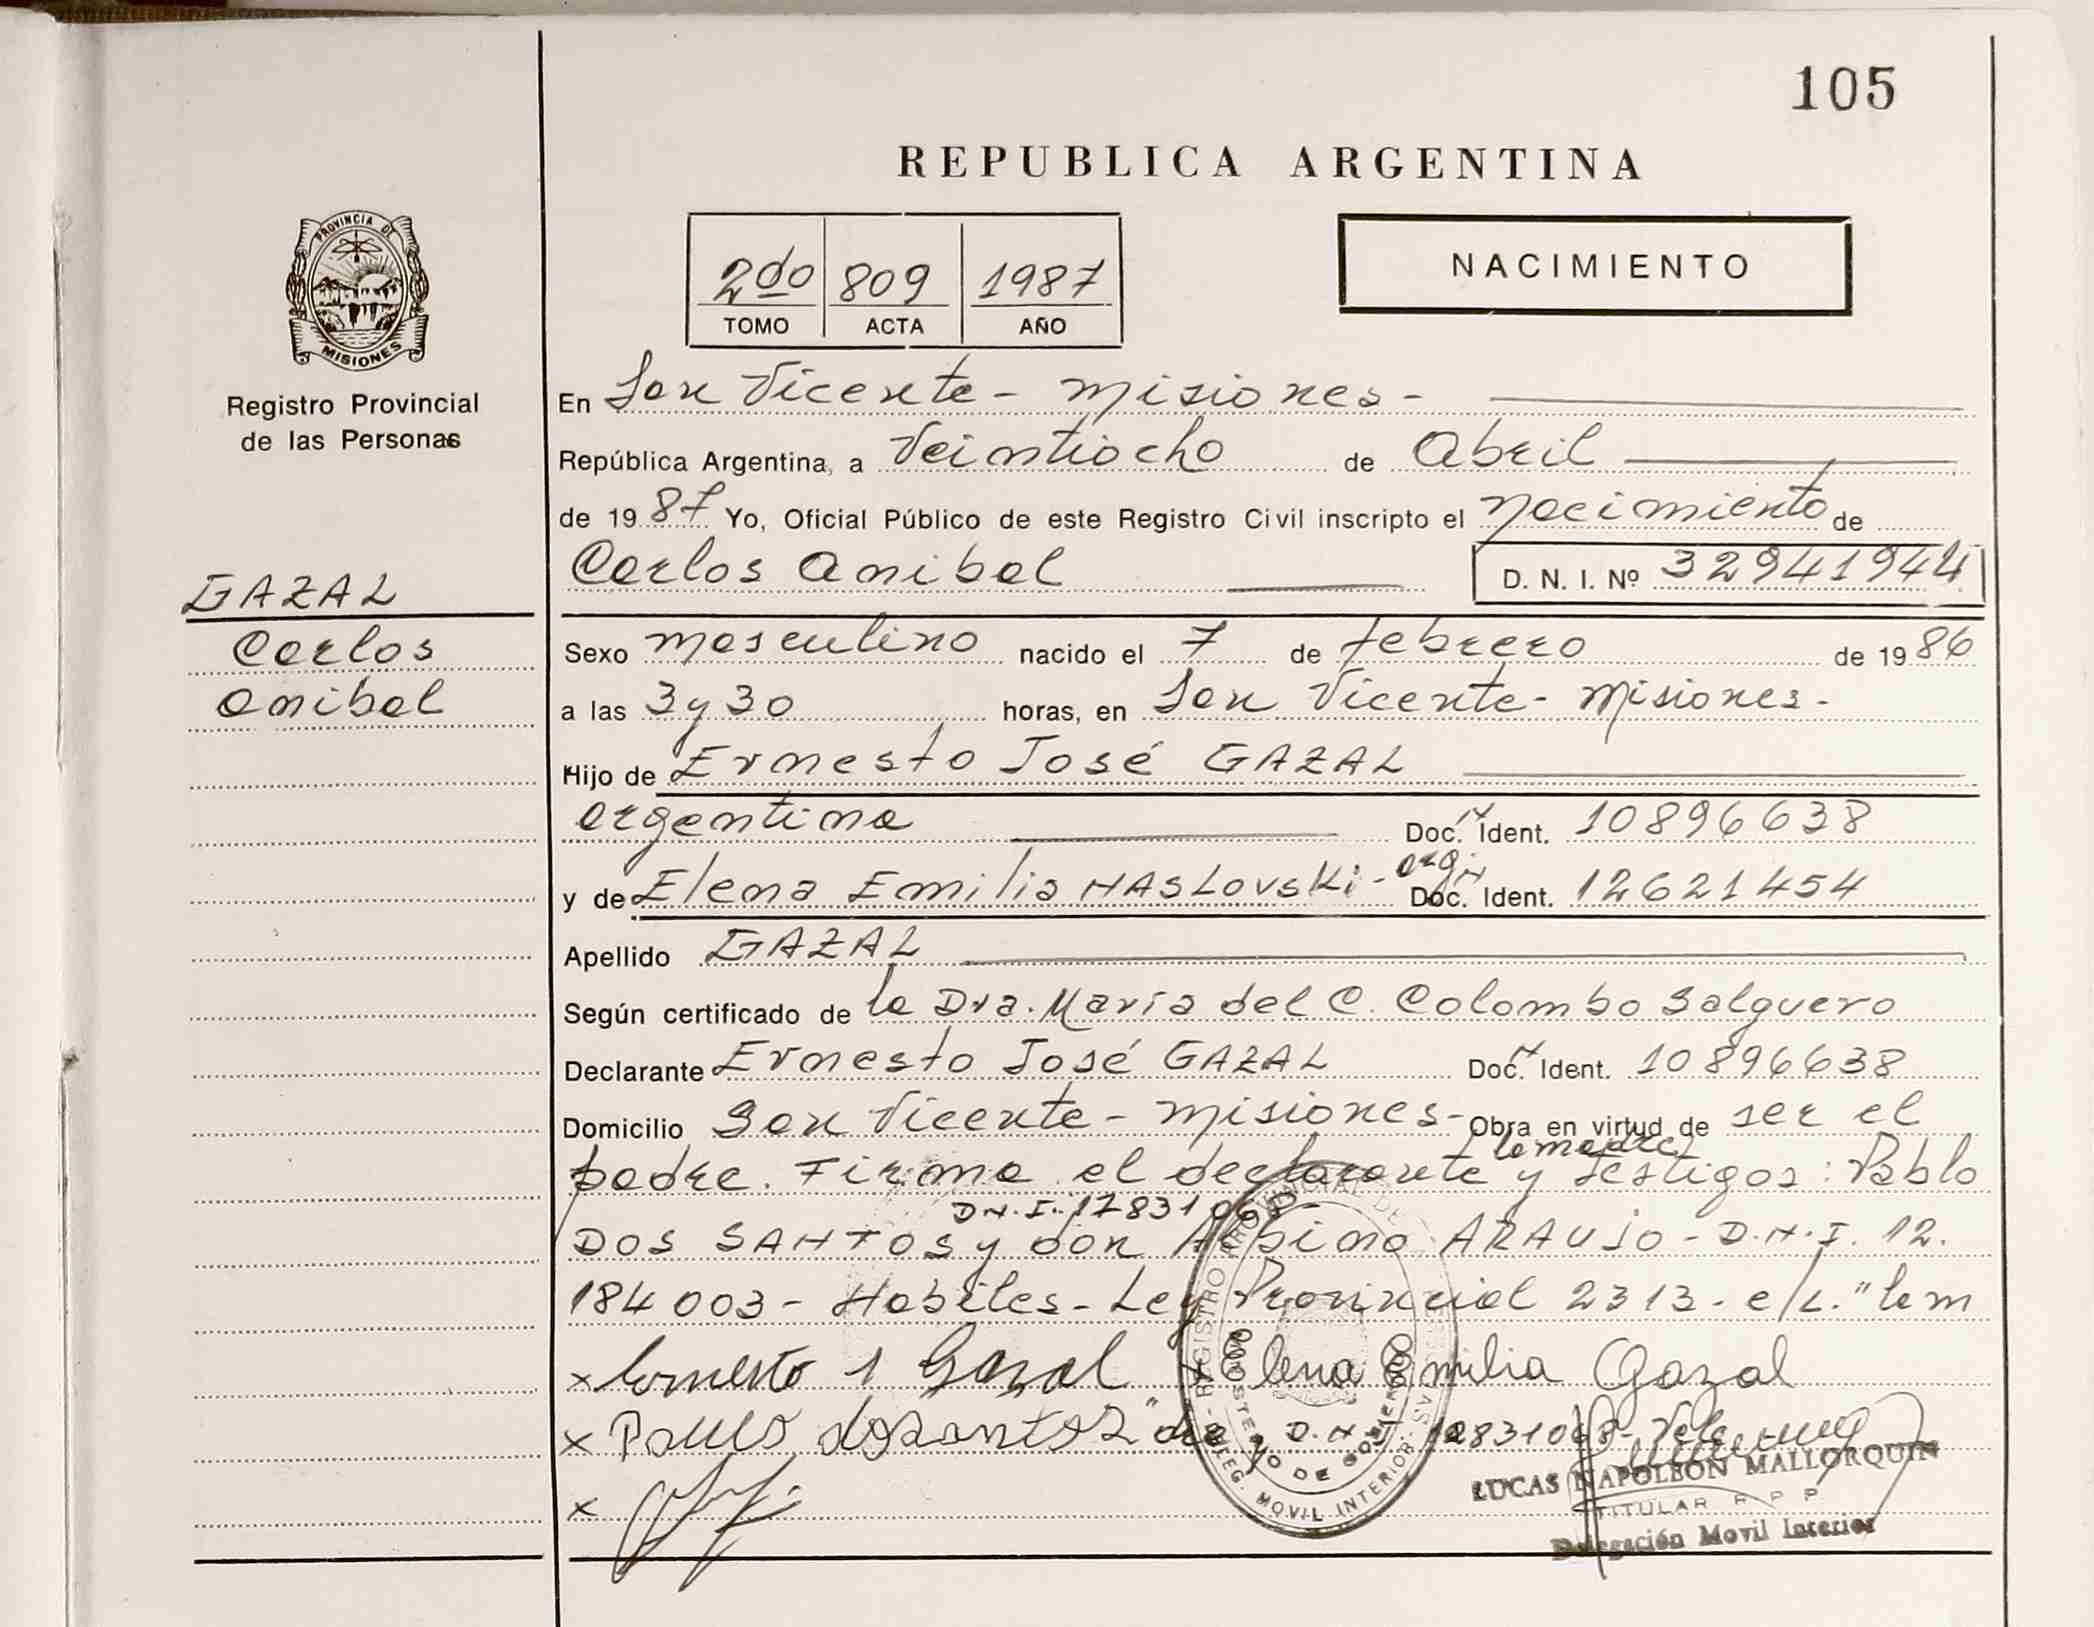 105
REPUBLICA ARGENTINA
PROVINCIA DE MISIONES
Registro Provincial de las Personas
2do 809 1987
TOMO ACTA AÑO
NACIMIENTO
En San Vicente - Misiones -
República Argentina, a Veintiocho de Abril
de 1987 Yo, Oficial Público de este Registro Civil inscripto el Nacimiento de
Carlos Anibal D. N. I. Nº 32941944
GAZAL
Carlos
Anibal
Sexo masculino nacido el 7 de febrero de 1986
a las 3 y 30 horas, en San Vicente - Misiones -
Hijo de Ernesto José GAZAL
argentina Doc. N Ident. 10896638
y de Elena Emilia HASLOVSKI - arg. Doc. N Ident. 12621454
Apellido GAZAL
Según certificado de la Dra. María del C. Colombo Salguero
Declarante Ernesto José GAZAL Doc. N Ident. 10896638
Domicilio San Vicente - Misiones - Obra en virtud de ser el
la madre
padre. Firma el declarante y testigos: Pablo
D.N.I. 17831068
DOS SANTOS y don Albino ARAUJO - D.N.I. 12.
184003 - Habiles - Ley Provincial 2313 - e/L. "la m
x Ernesto J Gazal x Elena Emilia Gazal
x Paulo dosantos "dre y D.N.I. 831068 - Vale
x
LUCAS NAPOLEON MALLORQUIN
TITULAR R P P
Delegación Movil Interior
REGISTRO PROVINCIAL DE LAS PERSONAS
MINISTERIO DE GOBIERNO
DELEG. MOVIL INTERIOR